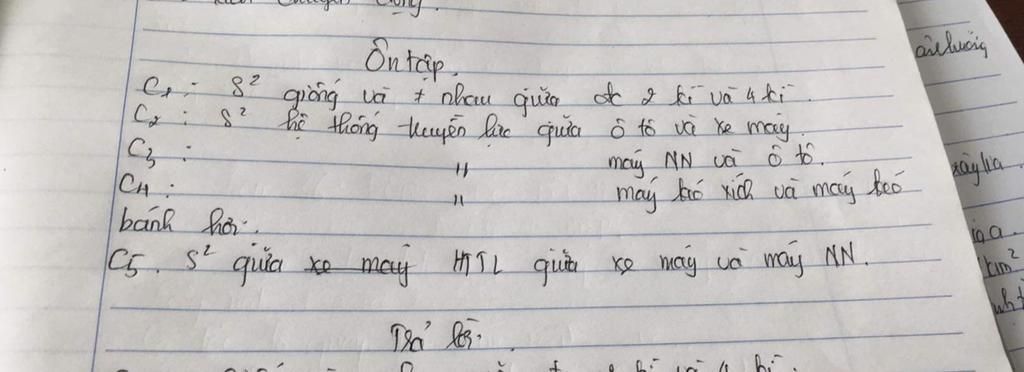 Ôn tập.
C1 : S² giống và ≠ nhau giữa đc 2 kì và 4 kì.
C2 : S² hệ thống truyền lực giữa ô tô và xe máy.
C3 : " máy NN và ô tô.
C4 : " máy kéo xích và máy kéo
bánh hơi.
C5. S² giữa xe máy HTL giữa xe máy và máy NN.
Trả lời.